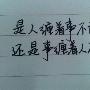 是人缠着事不
还是事缠着人